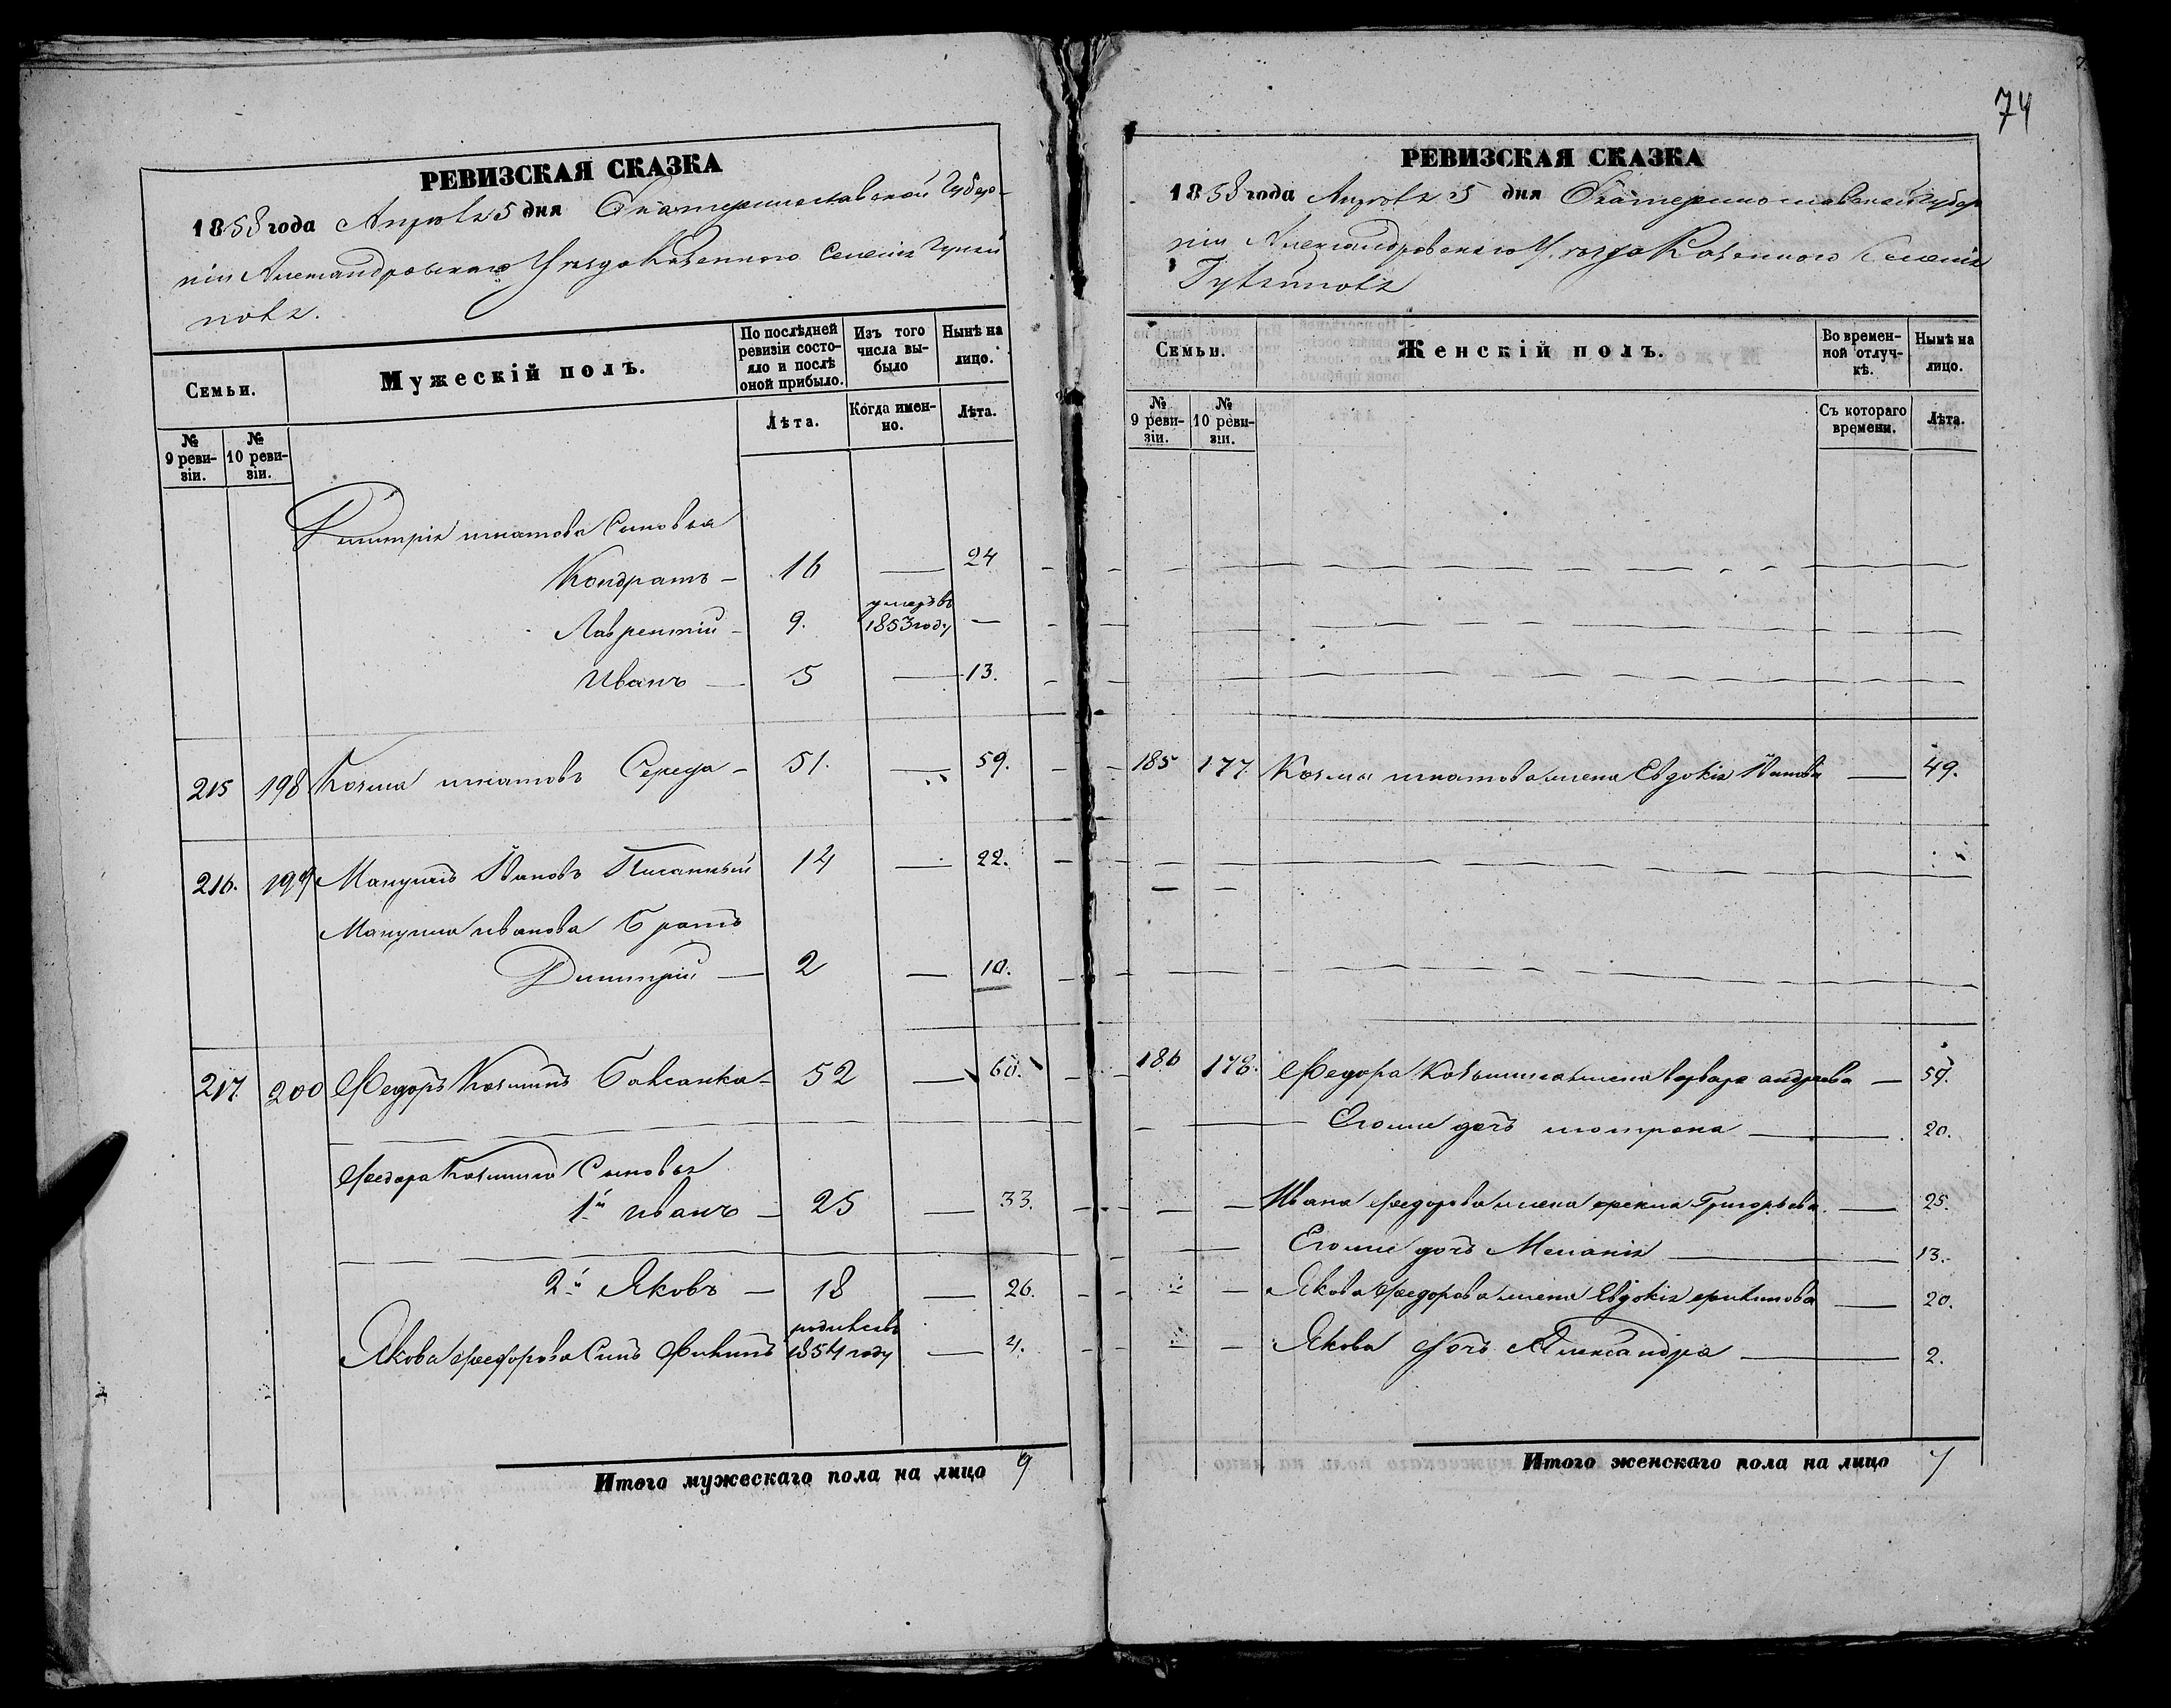 74
РЕВИЗСКАЯ СКАЗКА
1858 года Апреля 5 дня Екатеринославской Губер-
нии Александровскаго Уезда Казеннаго Селенія Гуляй
поля.
Семьи.
Мужескій полъ.
По послѣдней ревизіи состояло и послѣ оной прибыло.
Изъ того числа выбыло
Нынѣ на лицо.
№ 9 ревизіи.
№ 10 ревизіи.
Лѣта.
Когда именно.
Лѣта.
Дмитрія игнатова Сыновья
Кондратъ — 16 — 24
Лаврентій — 9. умеръ въ 1853 году —
Иванъ — 5 — 13.
215 198 Козьма игнатовъ Середа — 51. — 59.
216. 199 Мануилъ Ивановъ Писанный 14 — 22.
Мануила иванова Братъ
Димитрій — 2 — 10.
217. 200 Федоръ Козьминъ — 52 — 60.
Федора Козьмина Сыновья
1й иванъ — 25 — 33.
2й Яковъ — 18 — 26.
Якова федорова Сынъ Филипъ родился въ 1854 году — 4.
Итого мужескаго пола на лицо 9
РЕВИЗСКАЯ СКАЗКА
1858 года Апреля 5 дня Екатеринославской Губер
ніи Александровскаго Уезда Казеннаго Селенія
Гуляйполя
Семьи.
Женскій полъ.
Во временной отлучкѣ.
Нынѣ на лицо.
№ 9 ревизіи.
№ 10 ревизіи.
Съ котораго времени.
Лѣта.
185 177. Козьмы игнатова жена Евдокія Иванова — 49.
186 178. Федора Козьмина жена варвара андреева — 59.
Егоже дочь мотрона — 20.
Ивана федорова жена Григорьева — 25.
Егоже дочь Меланія — 13.
Якова Федорова жена Евдокія филипова — 20.
Якова дочь Александра — 2.
Итого женскаго пола на лицо 7